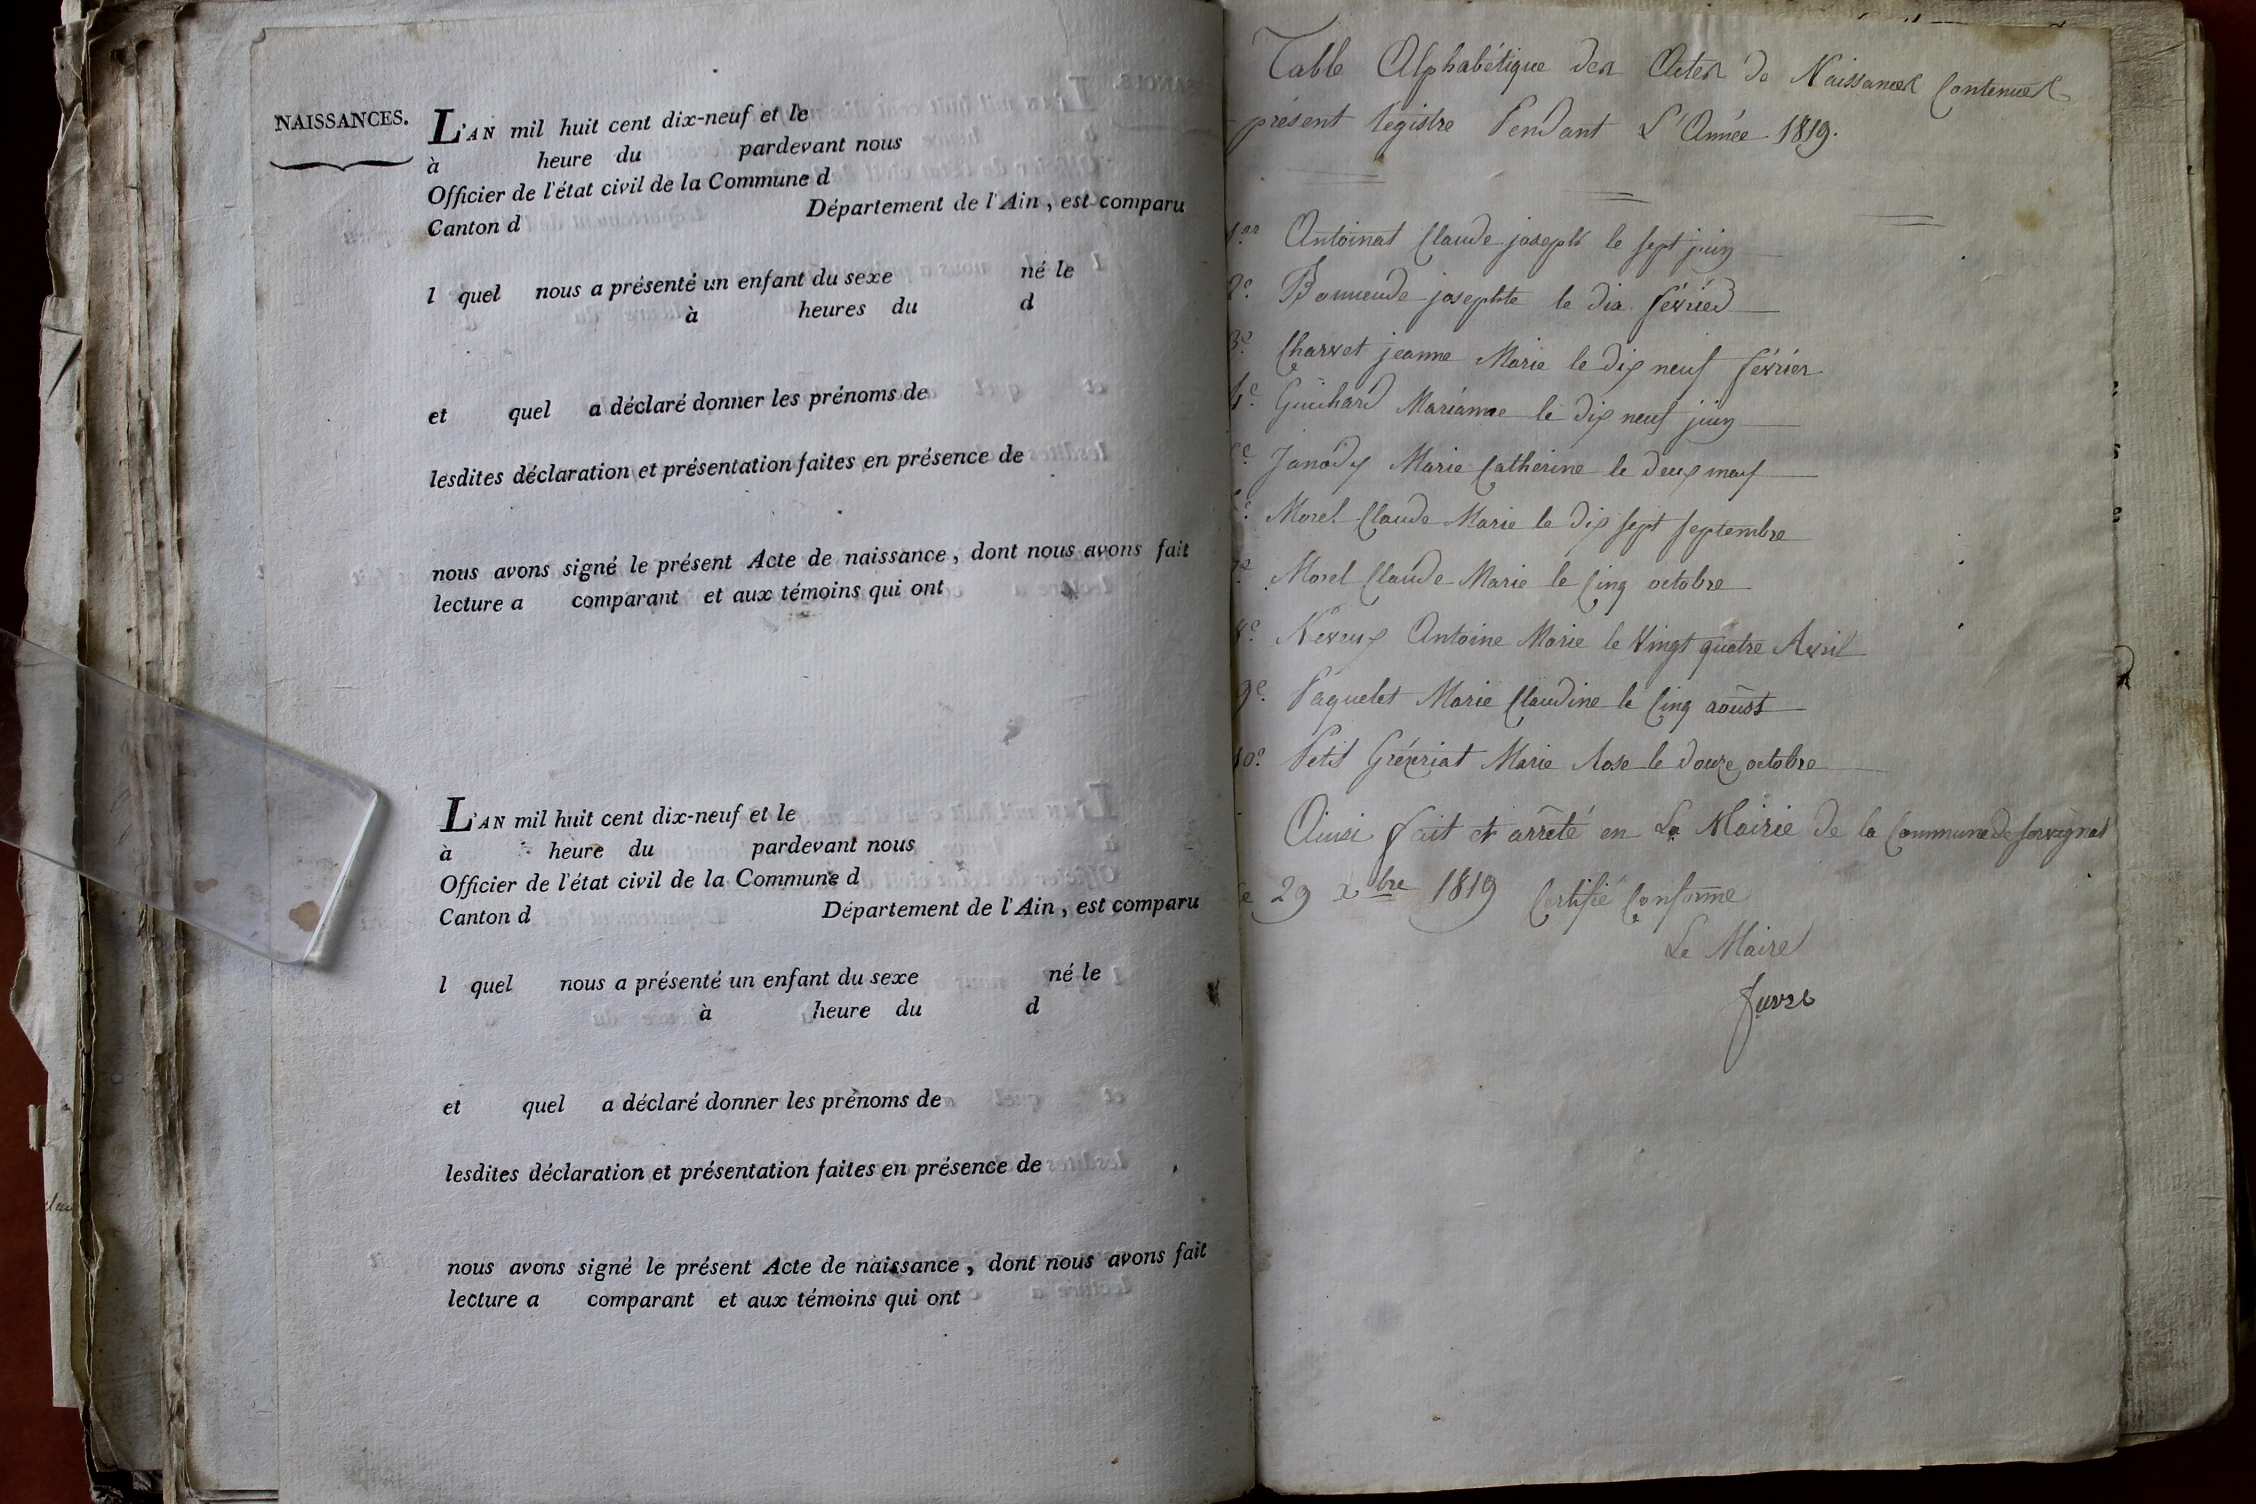 NAISSANCES.
L'AN mil huit cent dix-neuf et le
à heure du pardevant nous
Officier de l'état civil de la Commune d
Canton d Département de l'Ain, est comparu
l quel nous a présenté un enfant du sexe né le
à heures du d
et quel a déclaré donner les prénoms de
lesdites déclaration et présentation faites en présence de
nous avons signé le présent Acte de naissance, dont nous avons fait
lecture a comparant et aux témoins qui ont
L'AN mil huit cent dix-neuf et le
à heure du pardevant nous
Officier de l'état civil de la Commune d
Canton d Département de l'Ain, est comparu
l quel nous a présenté un enfant du sexe né le
à heure du d
et quel a déclaré donner les prénoms de
lesdites déclaration et présentation faites en présence de
nous avons signé le présent Acte de naissance, dont nous avons fait
lecture a comparant et aux témoins qui ont
Table Alphabétique des Actes de Naissances Contenues
présent registre Pendant L'Année 1819.
1er Antoinat Claude joseph le sept juin
2e. josephte le dix février
3e. Charvet jeanne Marie le dix neuf février
4e. Guichard Marianne le dix neuf juin
Janody Marie Catherine le deux mars
Morel Claude Marie le dix sept septembre
7e Morel Claude Marie le Cinq octobre
8e Neveux Antoine Marie le Vingt quatre Avril
9e. Paquelet Marie Claudine le Cinq aoust
10e. Petit Marie Rose le douze octobre
Ainsi fait et arrêté en La Mairie de la Commune de Servignat
Ce 29 xbre 1819 Certifié Conforme
Le Maire